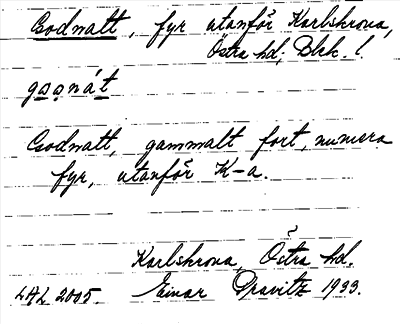 Gsodnatt, fyr utanför Karlskrona,
Östra hd, Blek. l.
gȧsǫnát
Gsodnatt, gammalt fort, numera
fyr, utanför K-a.
Karlskrona, Östra hd.
LAL 2005. Einar Gravitz 1933.